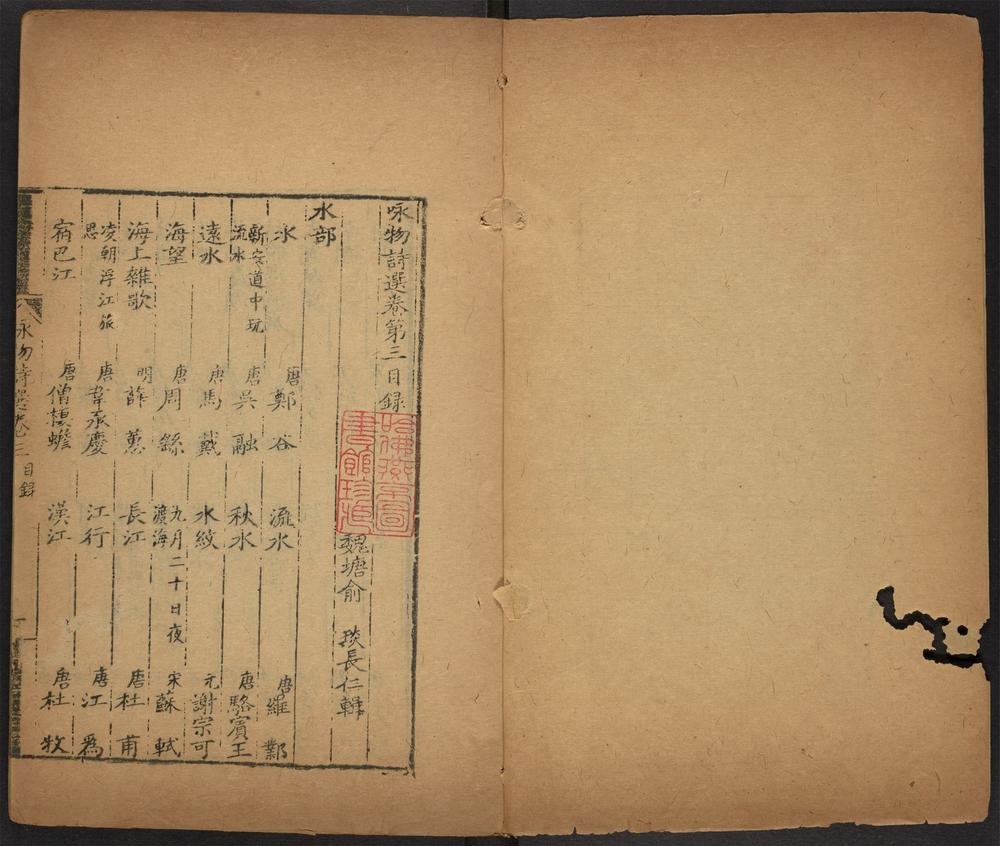 咏物詩選卷第三目録
魏塘俞 琰長仁輯
哈佛燕京圖書館珍藏
水部
水 唐鄭谷 流水 唐羅鄴
新安道中玩流水 唐吳融 秋水 唐駱賓王
遠水 唐馬戴 水紋 元謝宗可
海望 唐周繇 九月二十日夜渡海 宋蘇軾
海上雜歌 明薛蕙 長江 唐杜甫
凌朝浮江旅思 唐韋承慶 江行 唐江為
宿巴江 唐僧棲蟾 漢江 唐杜牧
咏物詩選卷三目録